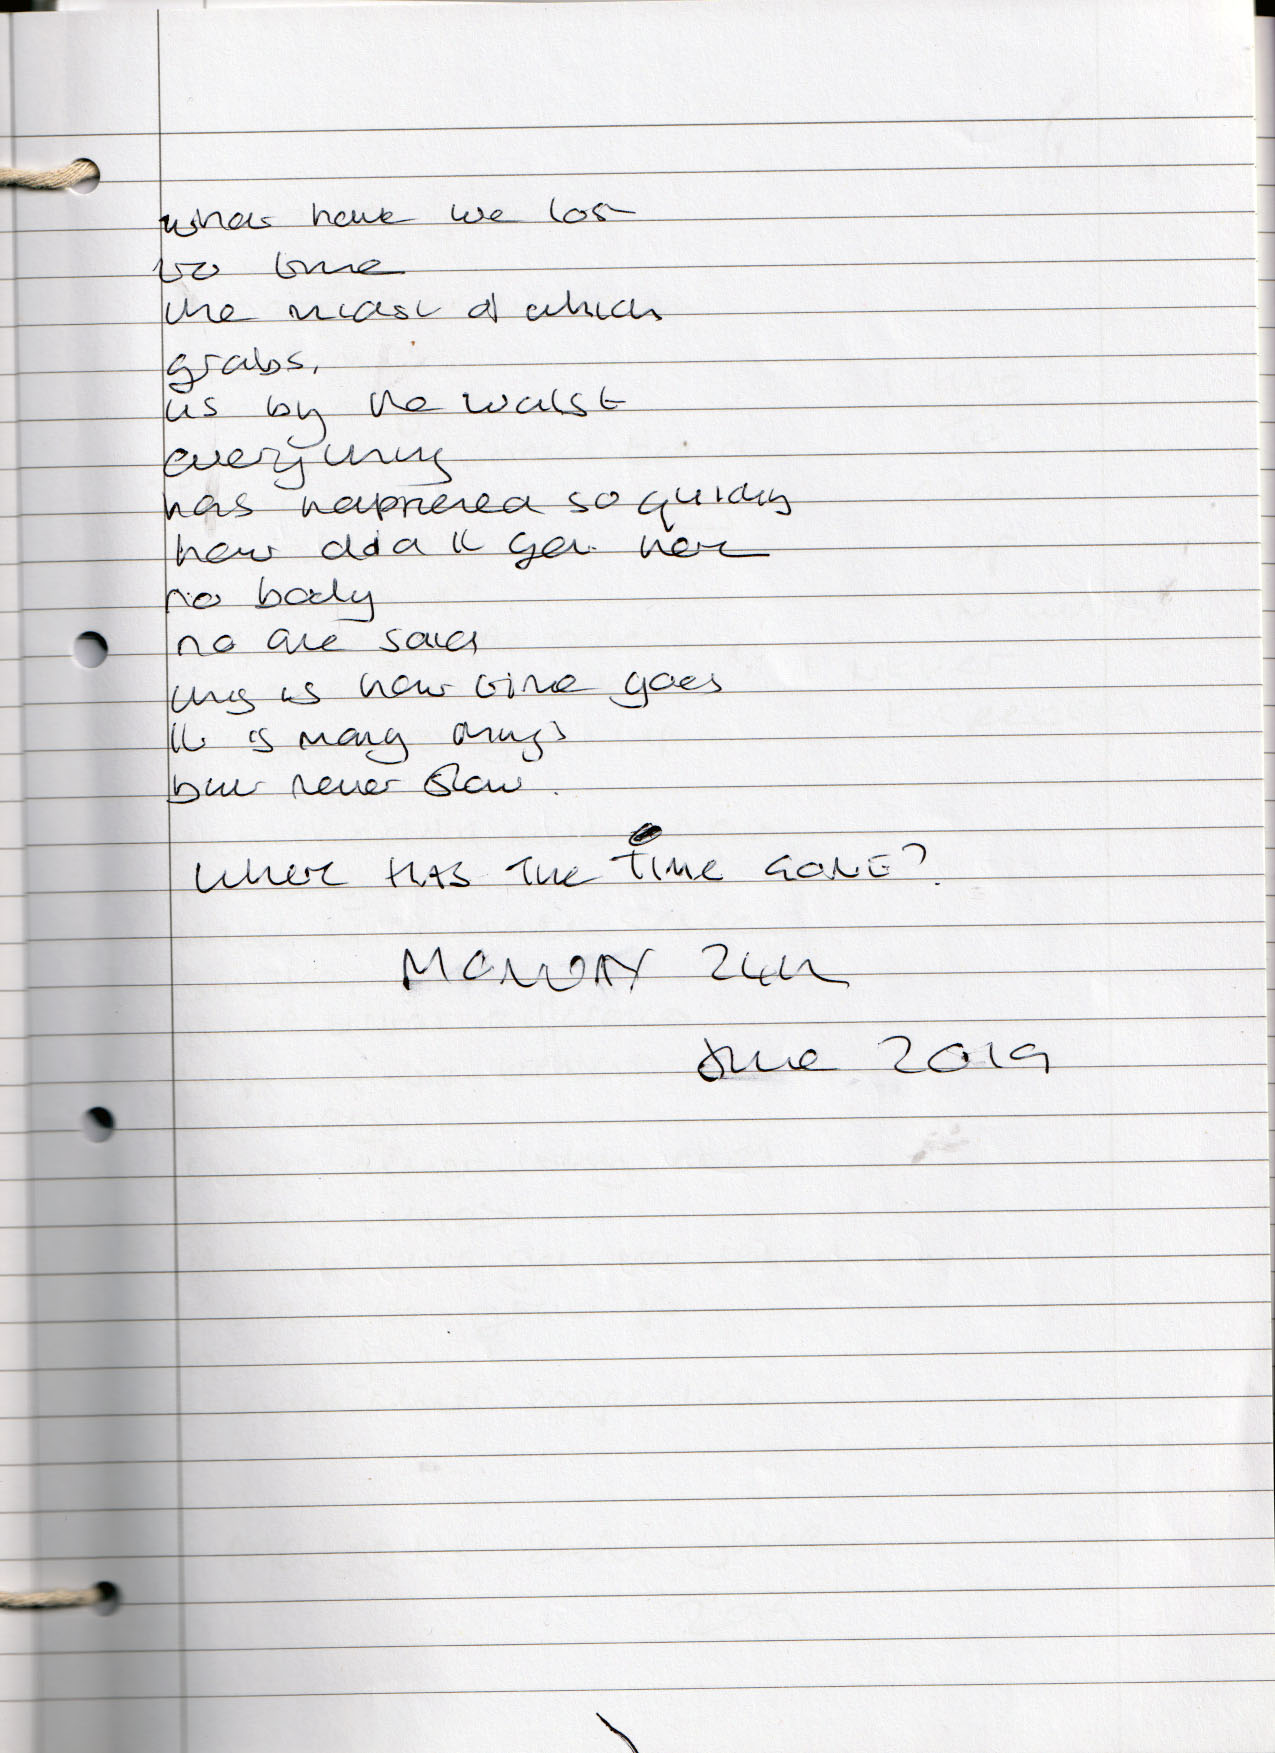 what have we lost
to time
the midst of which
grabs,
us by the waist
everything
has happened so quickly
how did it get here
no body
no one said
this is how time goes
it is many things
but never slow.
Where HAS THE TIME GONE?
MONDAY 24th
June 2019